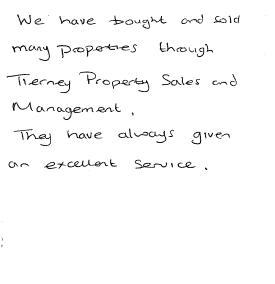 We have bought and sold
many propeties through
Tierney Property Sales and
Management.
They have always given
an excellent service.